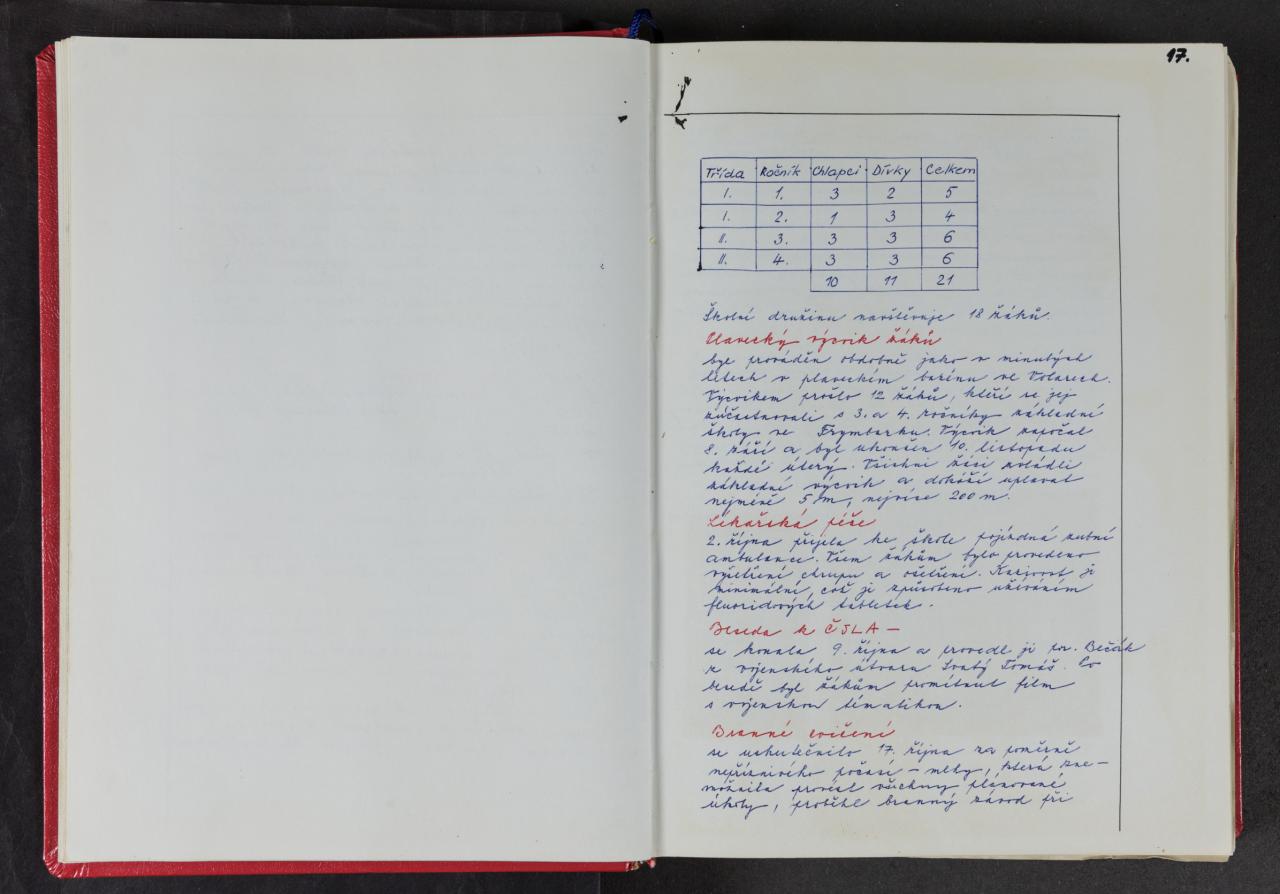 17.
Třída Ročník Chlapci Dívky Celkem
I. 1. 3 2 5
I. 2. 1 3 4
II. 3. 3 3 6
II. 4. 3 3 6
10 11 21
Školní družinu navštěvuje 18 žáků.
Plavecký výcvik žáků
byl prováděn obdobně jako v minulých
letech v plaveckém bazénu ve Volarech.
Výcvikem prošlo 12 žáků, kteří se jej
zúčastnovali s 3. a 4. ročníky základní
školy ve Frymburku. Výcvik započal
8. září a byl ukončen 10. listopadu
každé úterý. Všichni žáci zvládli
základní výcvik a dokáží uplavat
nejméně 5 m, nejvíce 200 m.
Lékařská péče
2. října přijela ke škole pojízdná zubní
ambulance. Všem žákům bylo provedeno
vyšetření chrupu a ošetření. Kazivost je
minimální, což je způsobeno užíváním
fluoridových tabletek.
Beseda k ČSLA –
se konala 9. října a provedl ji por. Bečák
z vojenského útvaru Svatý Tomáš. Po
besedě byl žákům promítnut film
s vojenskou tématikou.
Branné cvičení
se uskutečnilo 17. října za poměrně
nepříznivého počasí – mlhy, která zne-
možnila provést všechny plánované
úkoly, proběhl branný závod při